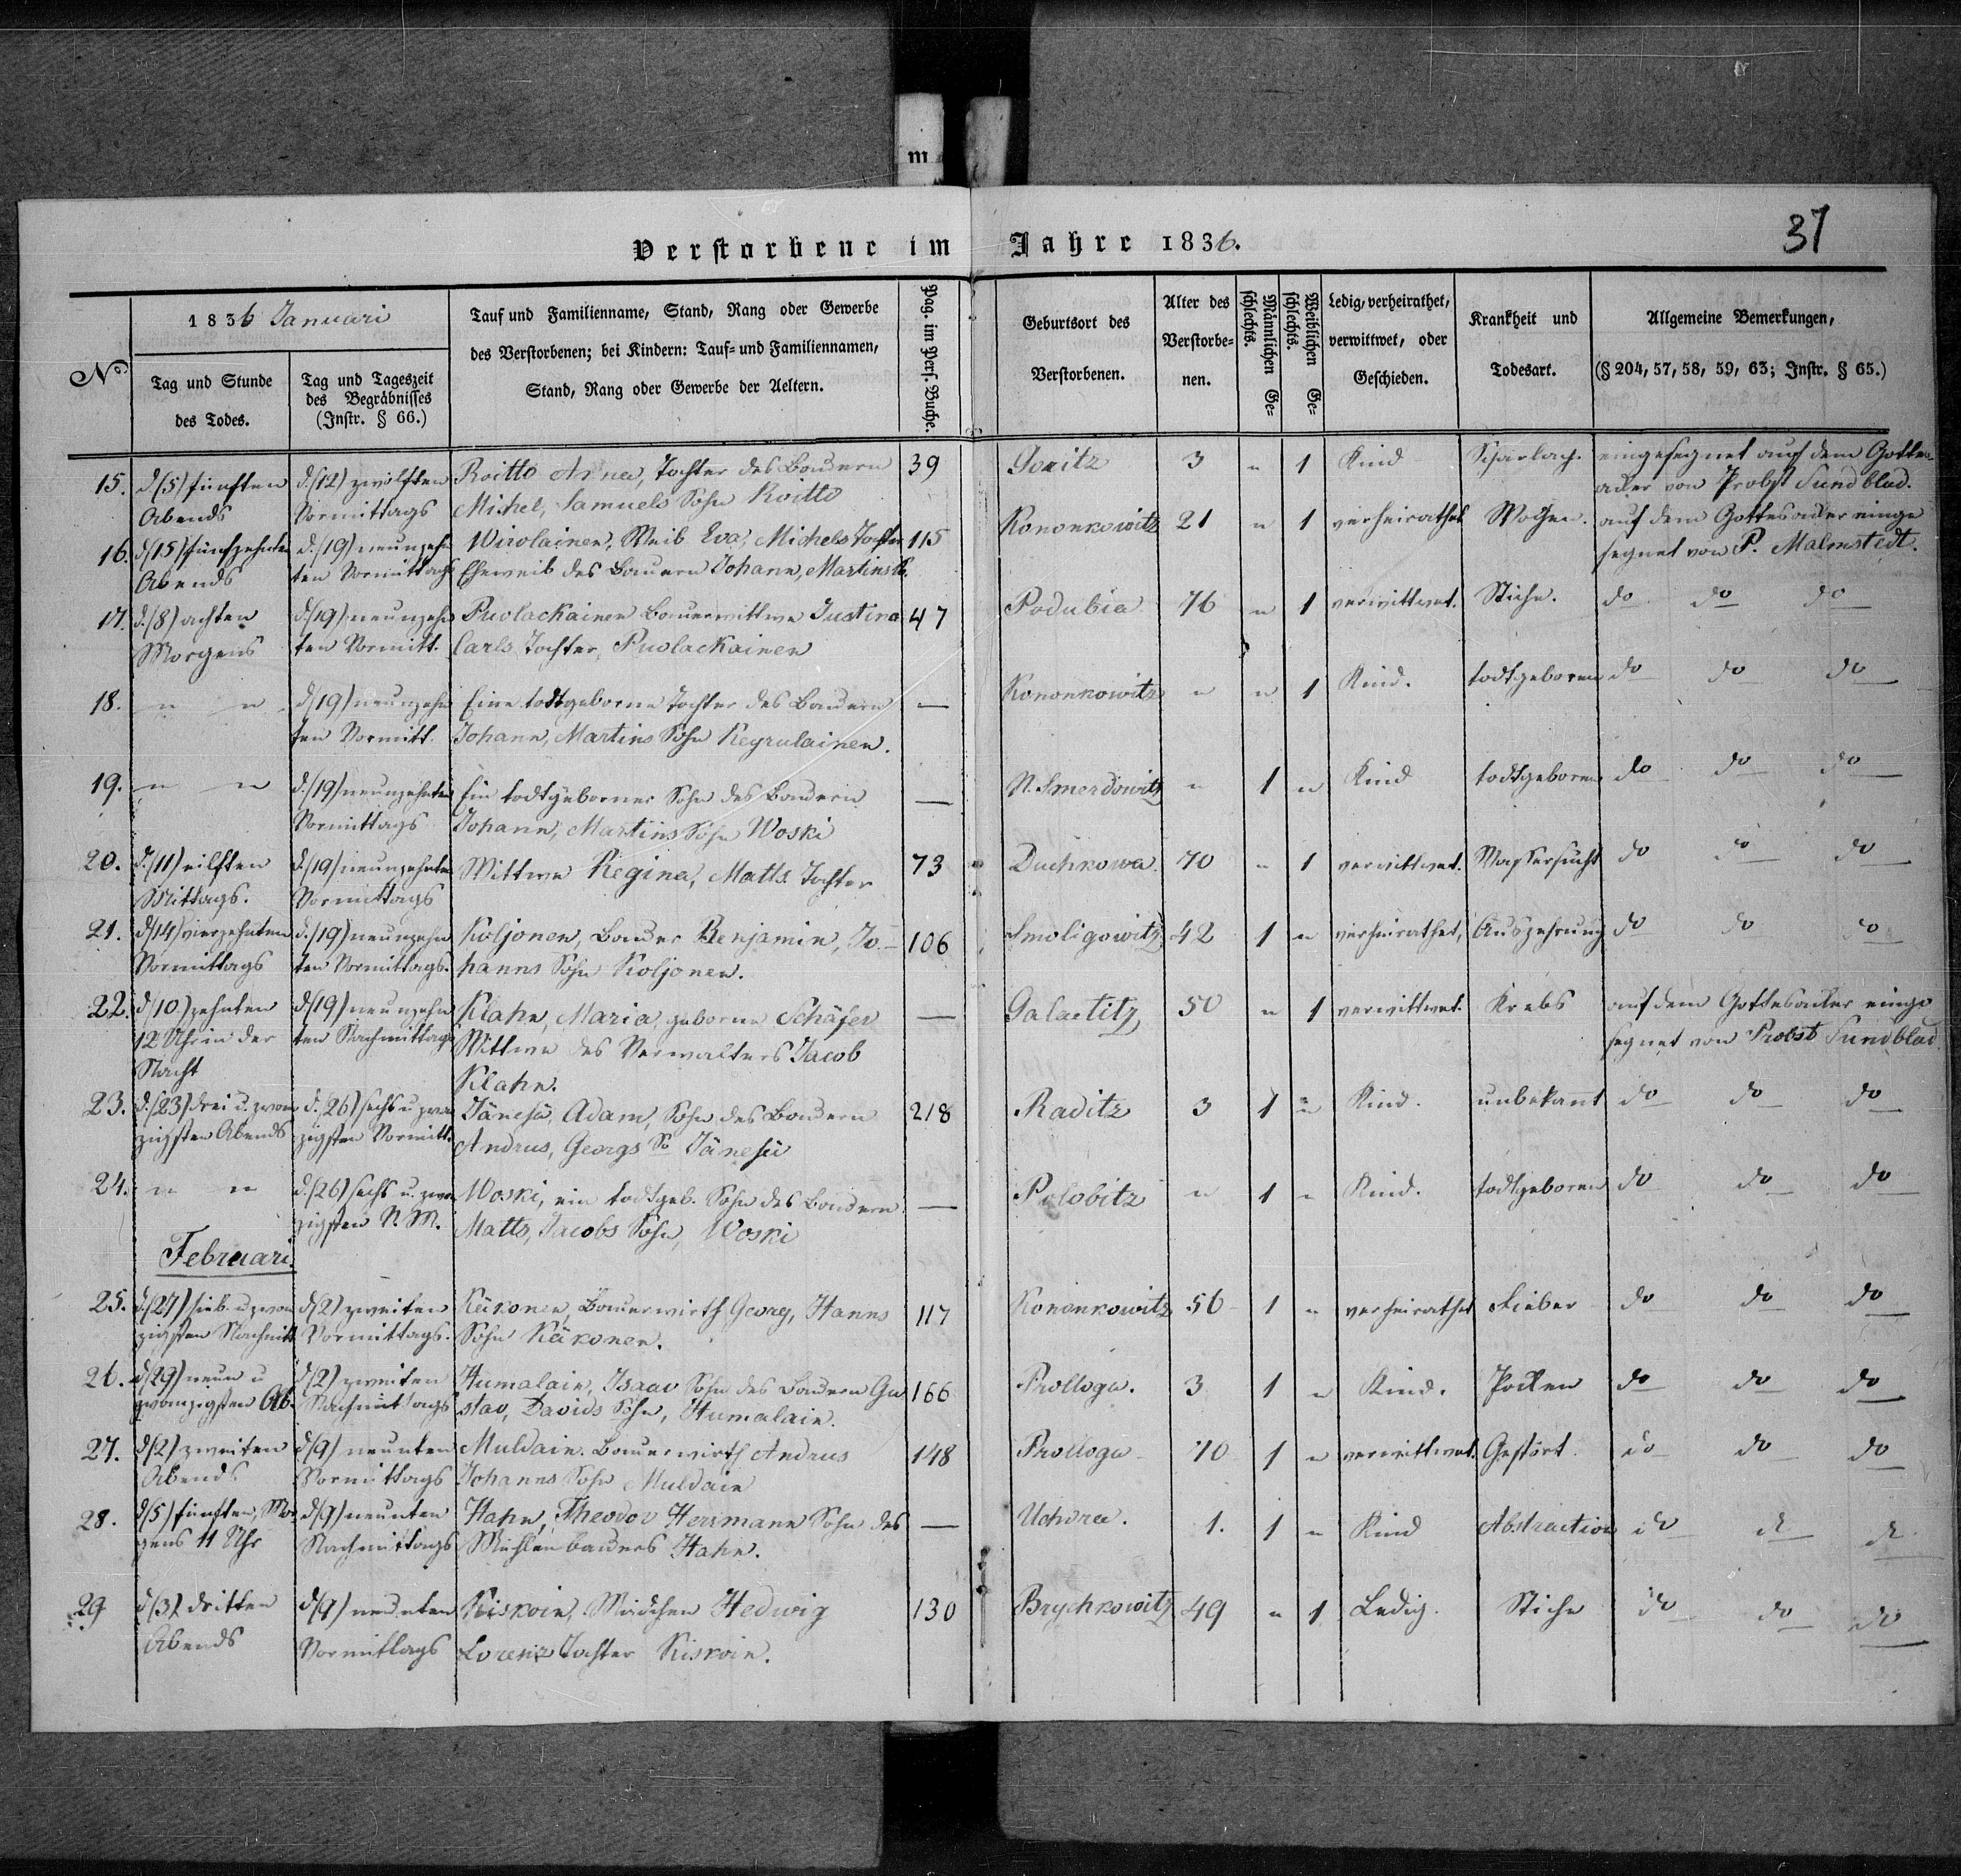 m
Verstorbene im Jahre 1836.
37
No
1836 Januari
Tag und Stunde des Todes.
Tag und Tageszeit des Begräbnisses (Instr. § 66.)
Tauf und Familienname, Stand, Rang oder Gewerbe
des Verstorbenen; bei Kindern: Tauf- und Familiennamen,
Stand, Rang oder Gewerbe der Aeltern.
Pag. im Pers. Buche.
Geburtsort des Verstorbenen.
Alter des Verstorbe-nen.
Männlichen Ge-schlechts.
Weiblichen Ge-schlechts.
Ledig, verheirathet, verwittwet, oder Geschieden.
Krankheit und Todesart.
Allgemeine Bemerkungen,
(§ 204, 57, 58, 59, 63; Instr. § 65.)
15. d. (5) fünften d. (12) zwölften Roitto Anna, Tochter des Bauern 39 Goritz 3 " 1 Kind Scharlach. eingesegnet auf dem Gottes-
Abends Vormittags Michel, Samuels Sohn Roitto acker von Probst Sundblad.
16. d. (15) fünfzehnten d. (19) neunzehn Wirolainen, Weib Eva, Michels Tochter 115 Kononkowitz 21 " 1 verheirathet auf dem Gottesacker einge
Abends ten Vormittags Eheweib des Bauern Johann, Martins S. segnet von P. Malmstedt.
17. d. (8) achten d. (19) neunzehn Puolackainen Bauerwittwe Justina 47 Podubia 76 " 1 verwittwet. Stiche. do do do
Morgens ten Vormitt. Carls Tochter, Puolackainen
18. " " d. (19) neunzehn Eine todtgeborne Tochter des Bauern — Kononkowitz " " 1 Kind. todtgeboren do do do
ten Vormitt. Johann, Martins Sohn Keyrulainen.
19. " " d. (19) neunzehnten Ein todtgeborner Sohn des Bauern — N. Smerdowitz " 1 " Kind todtgeboren do do do
Vormittags Johann, Martins Sohn Woski
20. d. (11) eilften d. (19) neunzehnten Wittwe Regina, Matts Tochter 73 Duchkowa. 70 " 1 verwittwet. Wassersucht do do do
Mittags. Vormittags
21. d. (14) vierzehnten d. (19) neunzehn Koljonen, Bauer Benjamin, Jo- 106 Smoligowitz 42 1 " verheirathet, Auszehrung do do do
Vormittags ten Vormittags. hanns Sohn Koljonen.
22. d. (10) zehnten d. (19) neunzehn Klahn, Maria, geborne Schäfer — Galactitz 50 " 1 verwittwet. Krebs auf dem Gottesacker einge
12 Uhr in der ten Nachmittags Wittwe des Verwalters Jacob segnet von Probst Sundblad
Nacht Klahn.
23. d. (23) drei u. zwan d. (26) sechs u zwan Jänesü, Adam, Sohn des Bauern 218 Raditz 3 1 " Kind. unbekant do do do
zigsten Abends zigsten Vormitt. Andrus, Georgs So Jänesü
24. " " d. (26) sechs u. zwan Woski, ein todtgeb. Sohn des Bauern — Polobitz " 1 " Kind. todtgeboren do do do
zigsten N. M. Matts, Jacobs Sohn, Woski
Februari.
25. d. (27) sieb. u zwan d (2) zweiten Käkonen, Bauerwirth Georg, Hanns 117 Kononkowitz 56 1 " verheirathet Fieber do do do
zigsten Nachmitt Vormittags. Sohn Käkonen.
26. d (29) neun u d (2) zweiten Humalain, Isaac Sohn des Bauern Gu 166 Prolloga. 3 1 " Kind. Pocken do do do
zwanzigsten Ab. Nachmittags stav, Davids Sohn, Humalain.
27. d (2) zweiten d (9) neunten Muldain. Bauerwirth Andrus 148 Prolloga 70 1 " verwittwet. do do do
Abends Vormittags Johanns Sohn Muldain
28. d (5) fünften, Mor d (9) neunten Hahn, Theodor Hermann Sohn des — 1. 1 " Kind Abstraction do do do
gens 11 Uhr Nachmittags Mühlenbauers Hahn.
29 d (3) dritten d (9) neunten Kiskoin, Mädchen Hedwig 130 Brychkowitz 49 " 1 Ledig. Stiche do do do
Abends Vormittags Lorenz Tochter Kiskoin.